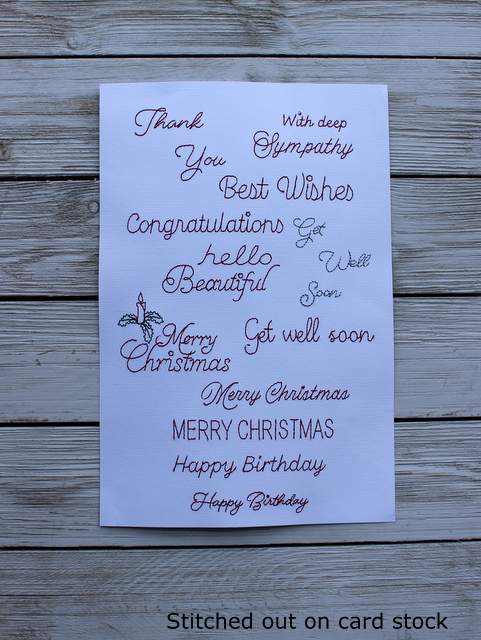 Thank
You
With deep
Sympathy
Best Wishes
Congratulations
Get
Well
Soon
hello
Beautiful
Merry
Christmas
Get well soon
Merry Christmas
MERRY CHRISTMAS
Happy Birthday
Happy Birthday
Stitched out on card stock